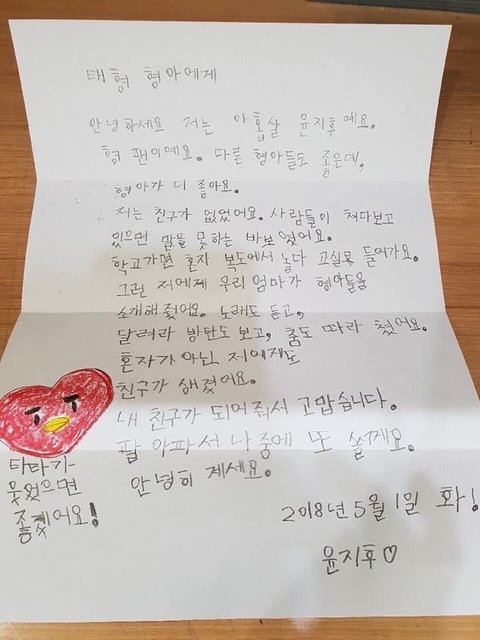 태형 형아에게
안녕하세요 저는 아홉살 윤지후예요.
형 팬이예요. 다른 형아들도 좋은데,
형아가 더 좋아요.
저는 친구가 없었어요. 사람들이 쳐다보고
있으면 말을 못하는 바보였어요.
학교가면 혼자 복도에서 놀다 교실로 들어가요.
그런 저에게 우리 엄마가 형아들을
소개해줬어요. 노래도 듣고,
달려라 방탄도 보고, 춤도 따라 췄어요.
혼자가 아닌 저에게도
친구가 생겼어요.
내 친구가 되어줘서 고맙습니다.
팔 아파서 나중에 또 쓸게요.
안녕히 계세요.
타타가
웃었으면
좋겠어요!
2018년 5월 1일 화!
윤지후♡